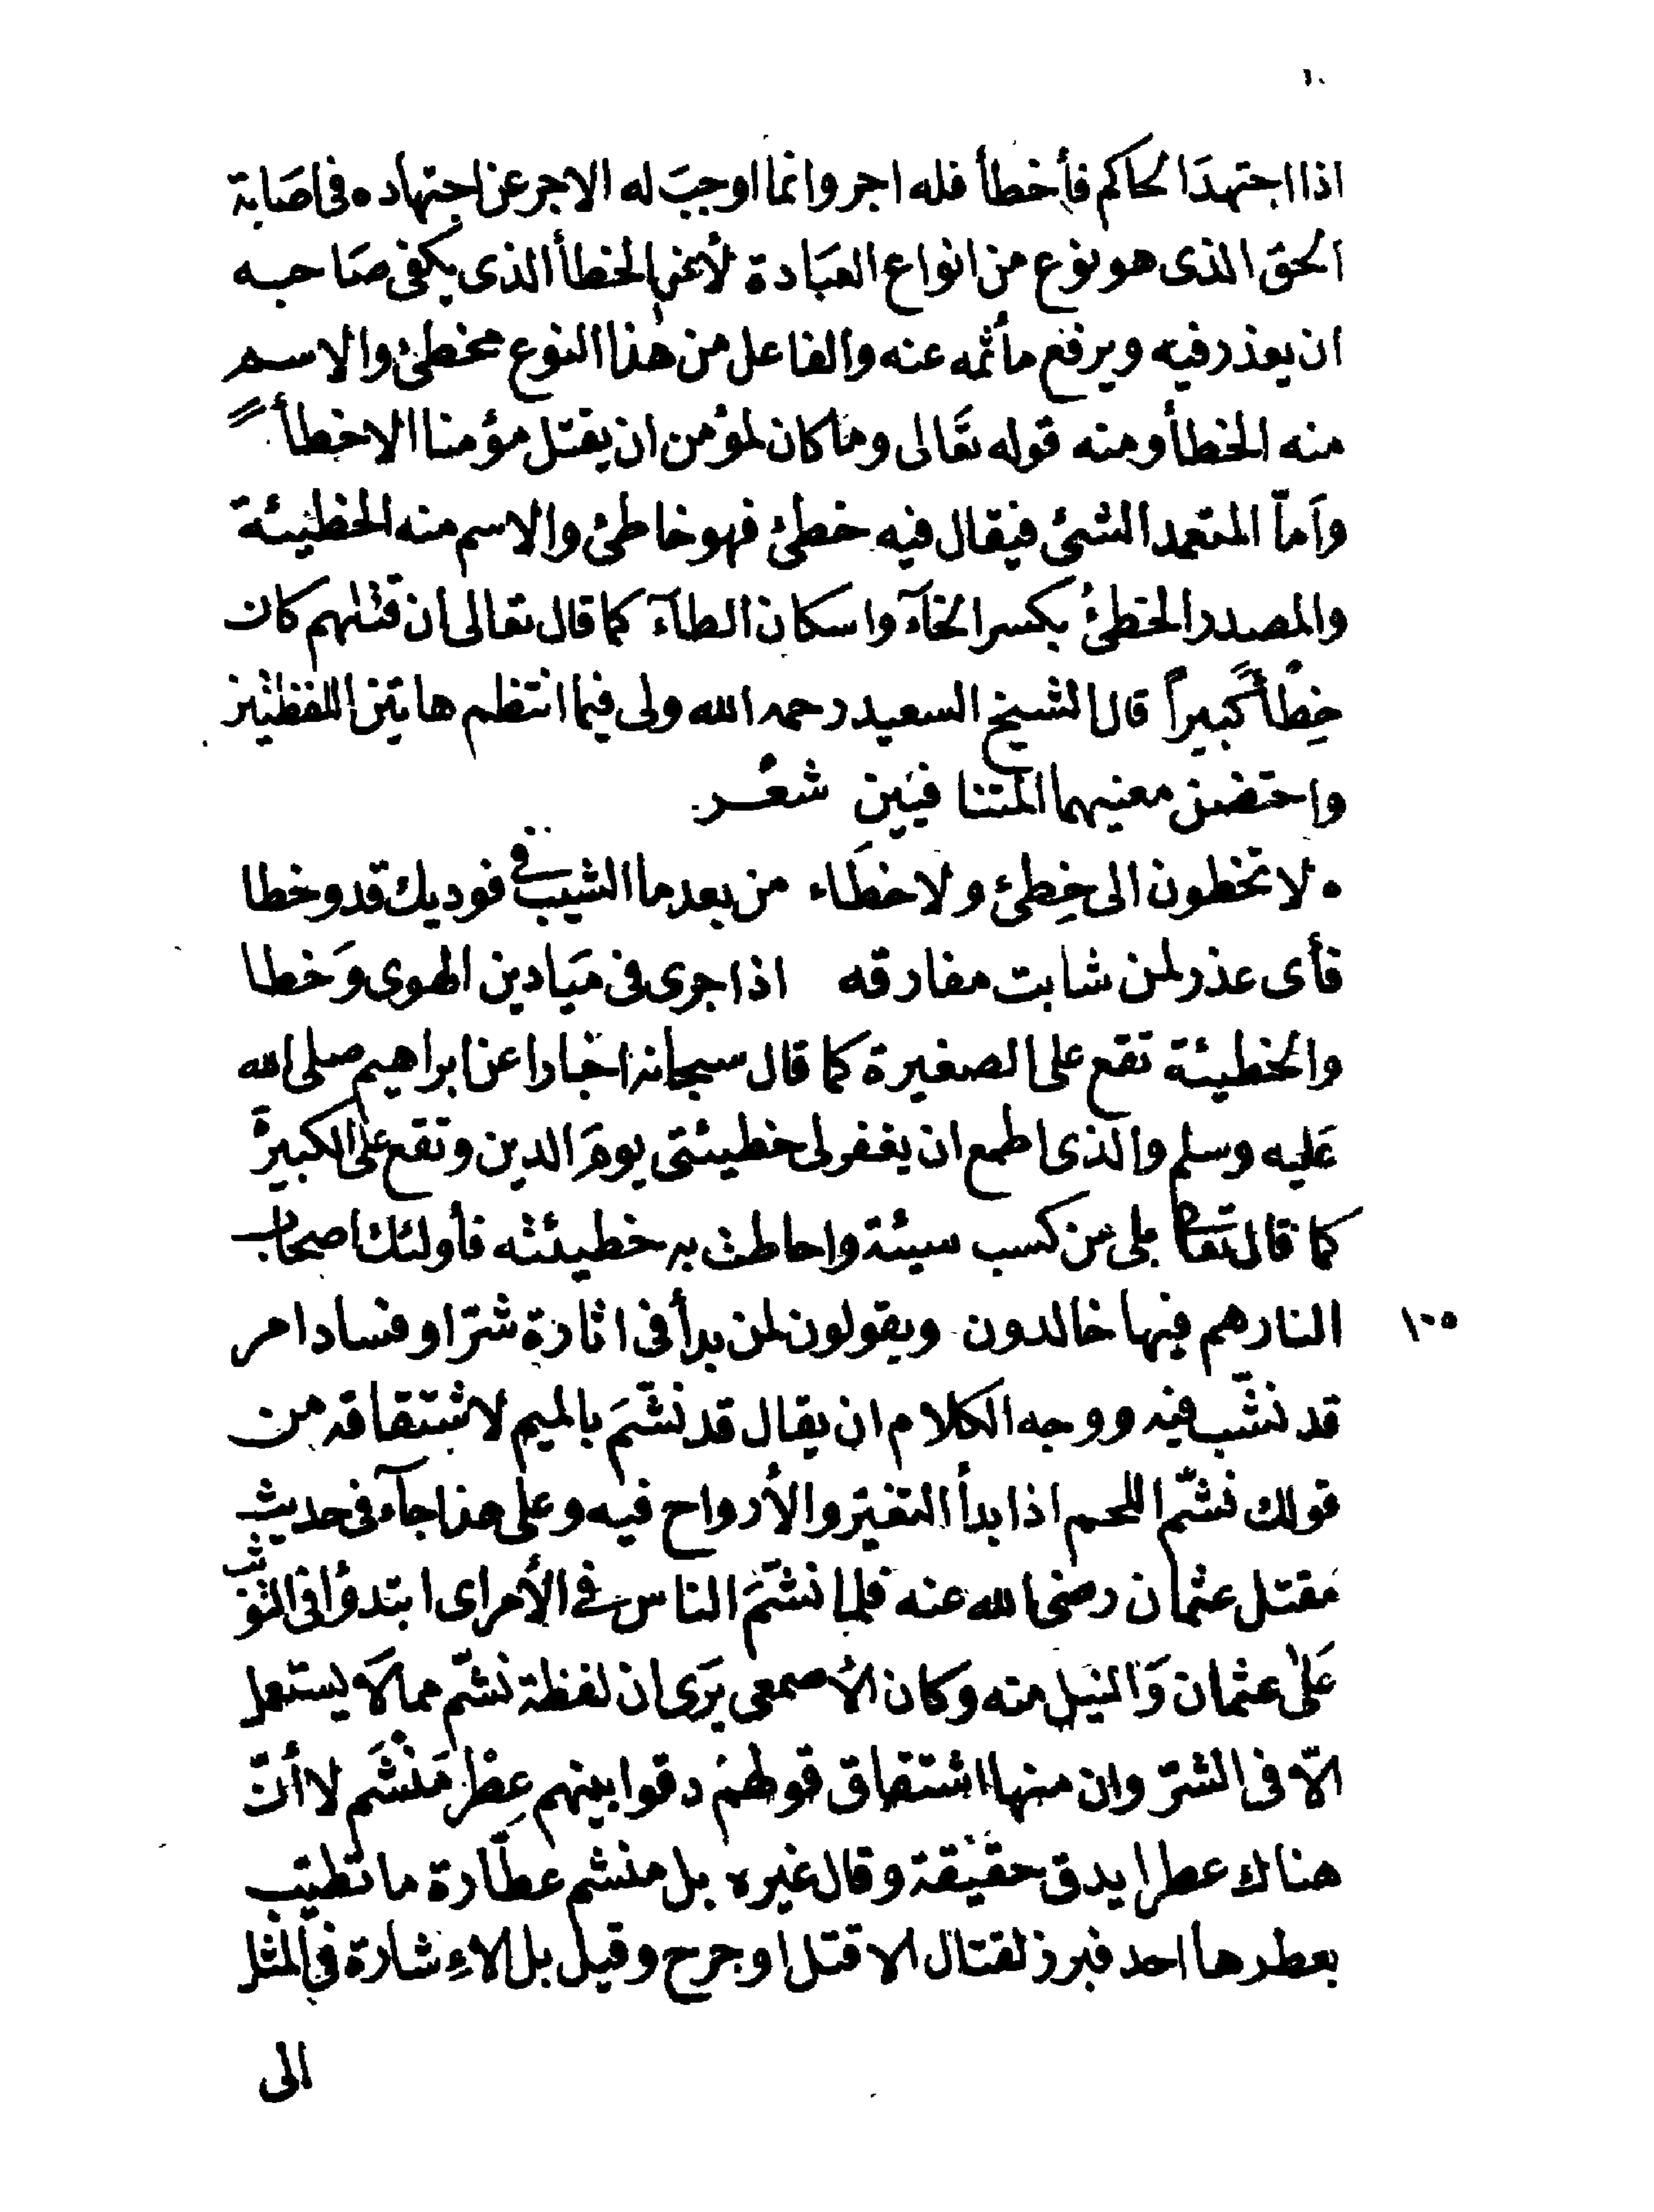 اذا اجتهدَ الحاكم فأخطأ فله اجر وانما اوجبَ له الاجر عن اجتهاده فى اصَابة
الحق الذى هو نوع من انواع العبَادة لأعن الخطأ الذى يكفى صَاحبه
ان يعذر فيه ويرفع مأثمه عنه والفاعل من هٰذا النوع مخطئ والاسم
منه الخطأ ومنه قوله تعَالى وما كان لمؤمن ان يقتل مؤمنا الا خطأً
وَامّا المتعمد الشئ فيقال فيه خطئ فهو خاطئ والاسم منه الخطيئة
والمصدر الخطئُ بكسر الخآء واسكان الطآء كما قال تعالى ان قتلهم كان
خِطْأً كَبيراً قال الشيخ السعيد رحمه الله ولى فيما انتظم هاتين اللفظتين
واحتضن معنيهما المتنافيَين شعر
ه لا تخطون الى خِطئ ولا خطَاء من بعد ما الشيب فى فوديك قد وخطا
فأى عذر لمن شابت مفارقه اذا جرى فى ميَادين الهوى وَخطا
والخطيئة تقع على الصغيرة كما قال سبحانه اخبارا عن ابراهيم صلى الله
عَليه وسلم والذى اطمع ان يغفر لى خطيئتى يومَ الدين وتقع على الكبيرة
كما قال تعالى بلى من كسب سيئة واحاطت به خطيئته فأولئك اصحاب
النار هم فيها خالدون ويقولون لمن بدأ فى اثارة شرّ او فساد امر
١٠٥
قد نشّب فيه ووجه الكلام ان يقال قد نشّمَ بالميم لاشتقاقه من
قولك نشّم اللحم اذا بدأ التغيّر والأرواح فيه وعلى هذا جآء فى حديث
مقتل عثمان رضى الله عنه فلما نشّمَ الناس فى الأمر اى ابتدؤا فى التوثب
عَلىٰ عثمان وَالنيل منه وكان الأصمعى يرَى ان لفظة نشّم مما لَا يستعمل
الّا فى الشرّ وان منها اشتقاق قولهمْ دقوا بينهم عِطْر مَنْشَم لا أنّ
هناك عطرا يدق حقيقة وقال غيره بل منشم عطّارة ما تطيّب
بعطرها احد فبرز لقتال الا قتل او جرح وقيل بل الاءِشارة فى المثل
الى